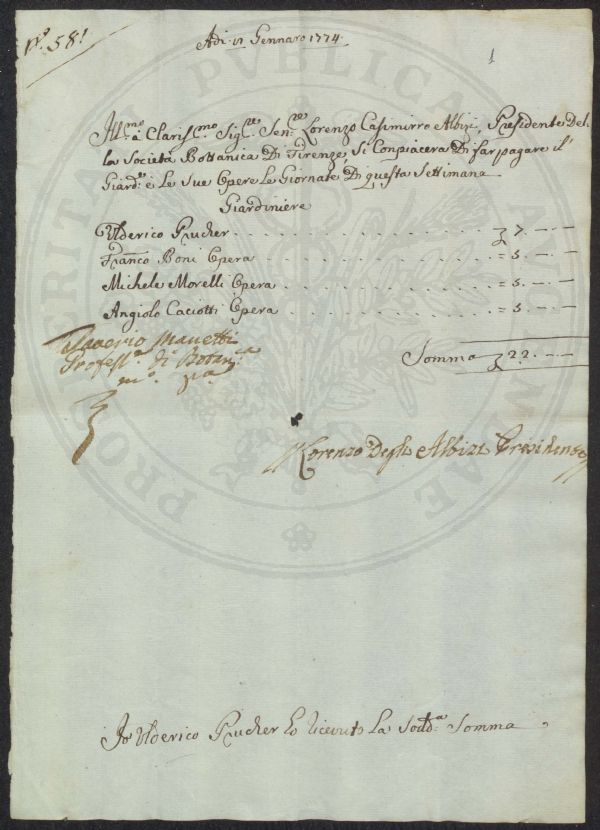 N.º 581
Adi 12 Gennaro 1774
1
Ill:mo e Claris:mo Sig:re Sen:re Lorenzo Casimirro Albizi, Presidente Del
la Società Bottanica Di Firenze, Si Conpiacera Di far pagare il
Giard:e e Le Sue Opere Le Giornate Di questa Settimana
Giardiniere
Ulderico Prucher . . . . . . . . . . 7. — —
Franco Boni Opera . . . . . . . . . . = 5. — —
Michele Morelli Opera . . . . . . . . . . = 5. — —
Angiolo Caciotti Opera . . . . . . . . . . = 5. — —
Somma 22. — —
Saverio Manetti
Profess:e di Botan:ca
m:o p:a
Lorenzo Degli Albizi Presidente
Io Ulderico Prucher ho ricevuto La Sod:a Somma
PROSPERITATI PVBLICAE AVGENDAE